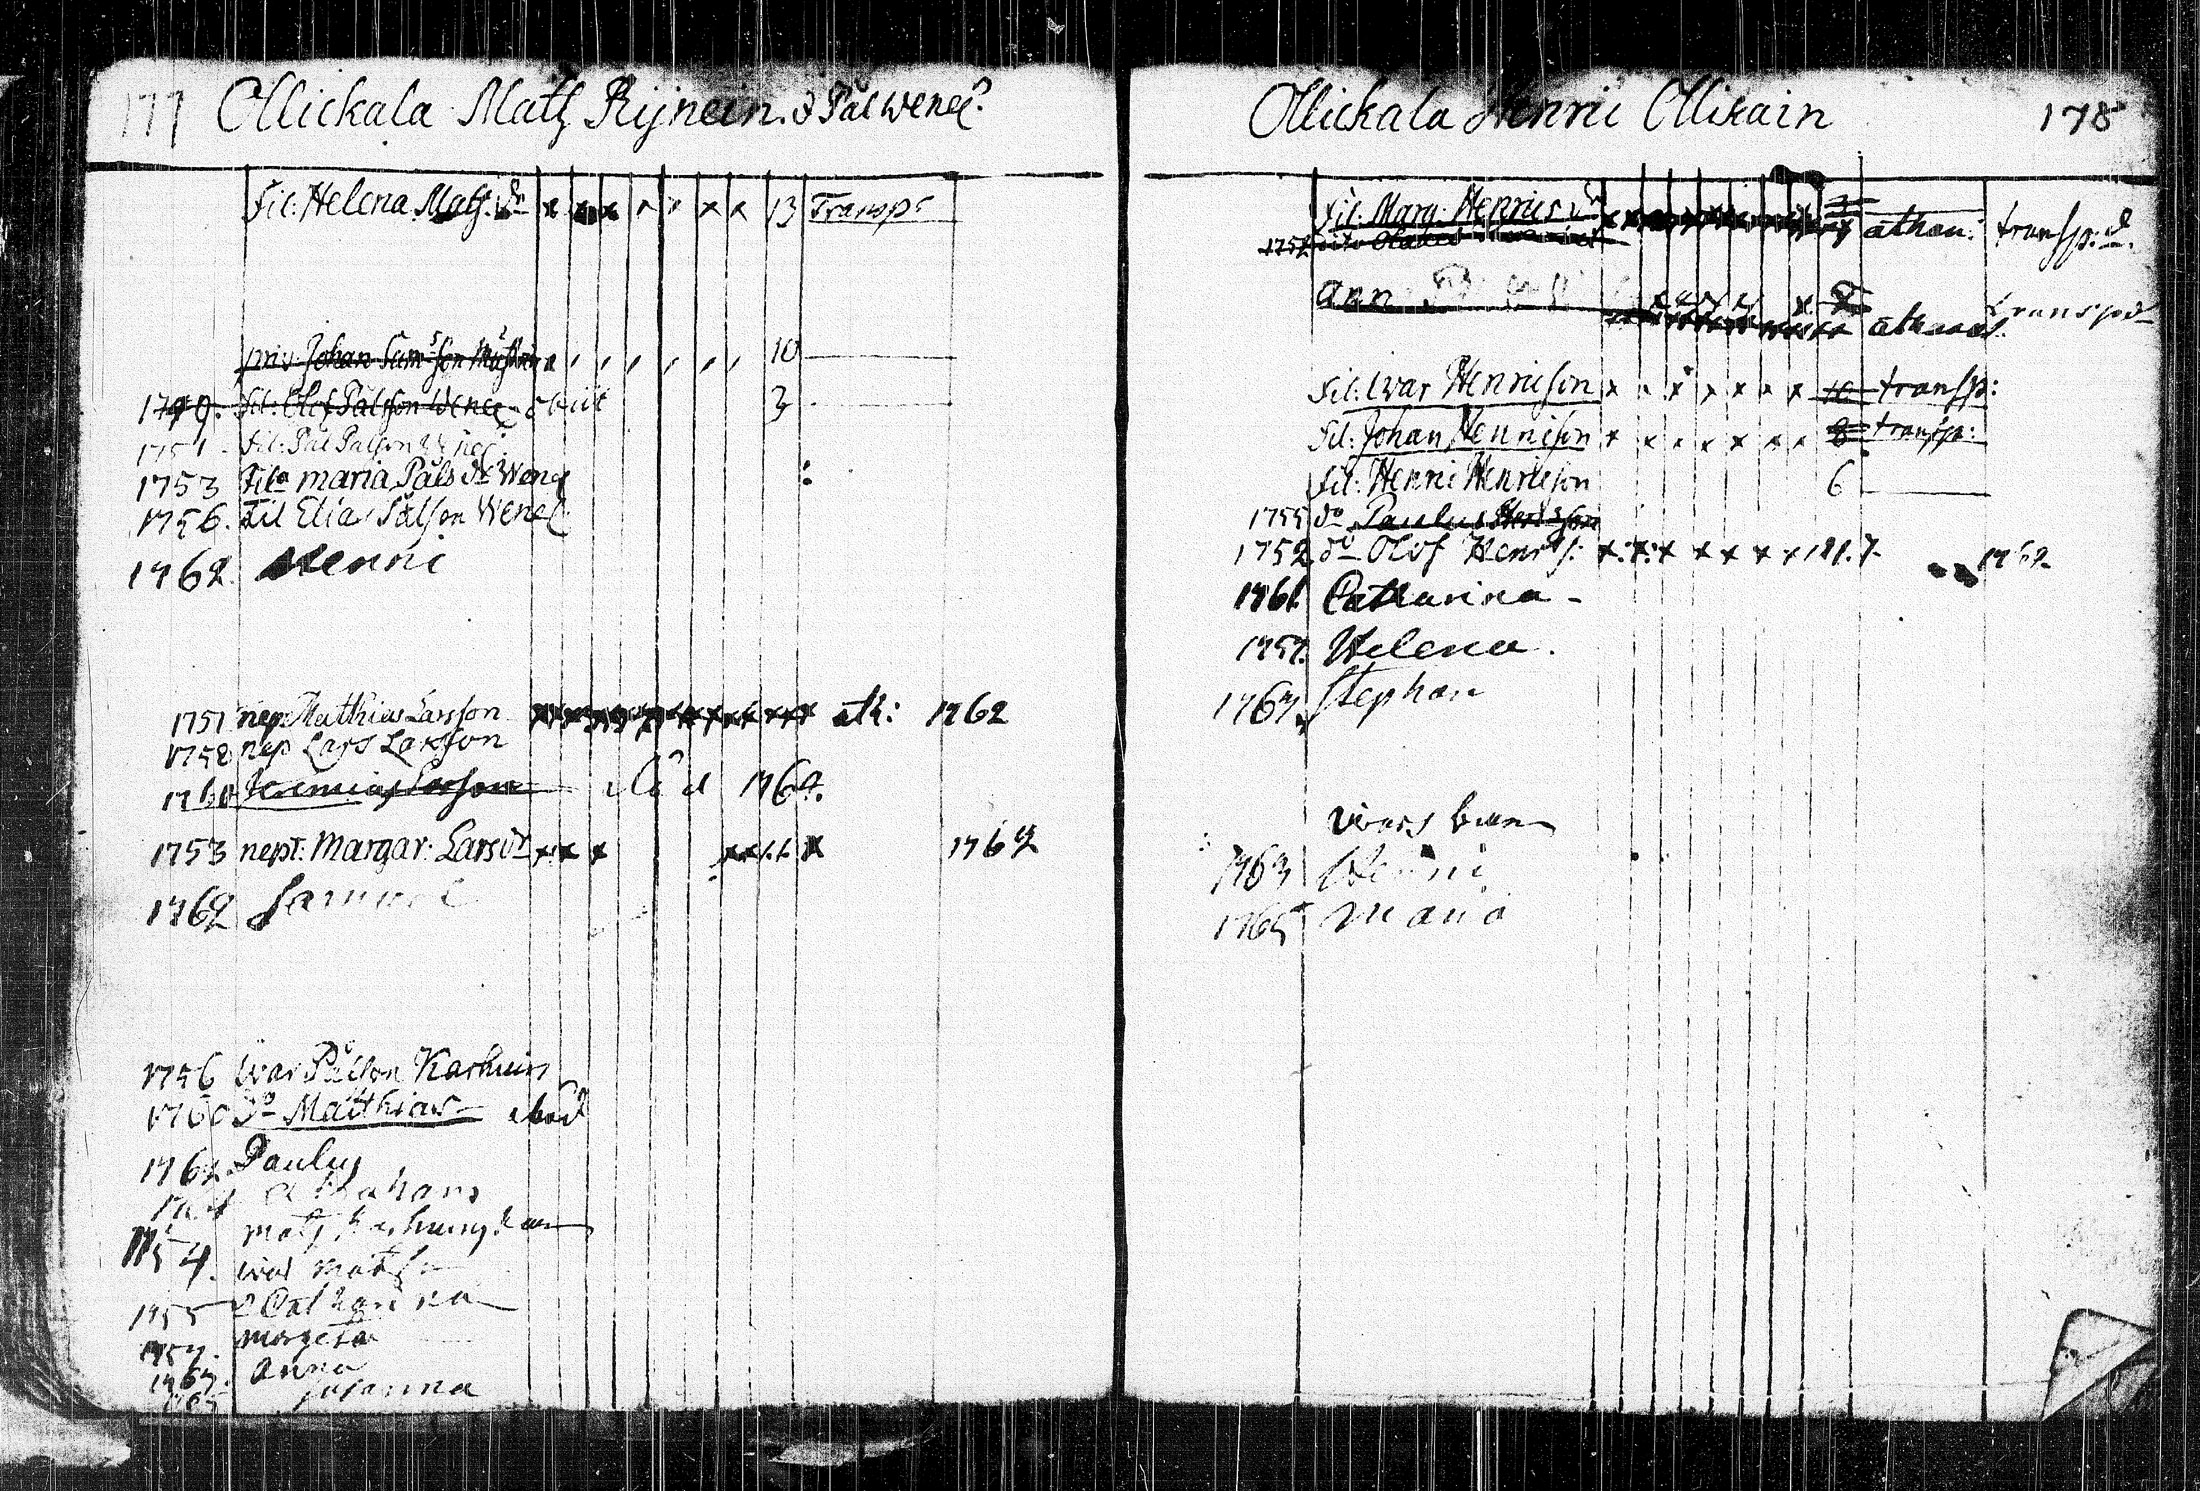 177 Ollickala Matz Rijnein. & Pål Wenel?
Fil: Helena Mats. dr 13 Transp:
priv: Johan Sam:son 10
1749. Fil: Olof Pålsson Wenel obiit 3
1751. Fil: Pål Pålson Wenel
1753 Fila maria Påls dr Wenel
1756. Fil Elias Pålson Wenel
1762. Henric
1751 nep: Matthias Larsson ath: 1762
1758 nep Lars Larsson
1760 Jeremias Larsson död 1762.
1753 nept: Margar: Lars dr 1762
1762 Samuel
1756 Ivar Pålson Karhuin
1760 Do Matthias död
1762 Paulus
Abraham
mats
1754. Ivar matss
1755 Catharina
1757. margeta
1763. Anna
susanna
Ollickala Henric Ollikain 178
Fil: Marg: Henrics dr athan: transp: d.
1752
Ann transpd
Fil: Ivar Henricson 10 transp:
Fil: Johan Henricson 8 transp:
Fil: Henric Henricson 6
1755 do Paulus Henr:son
1752. do Olof Henr s: 7. 1762
1761. Catharina
1757. Helena.
1763. Stephan
ivars barn
1763 Henric
1765 Maria